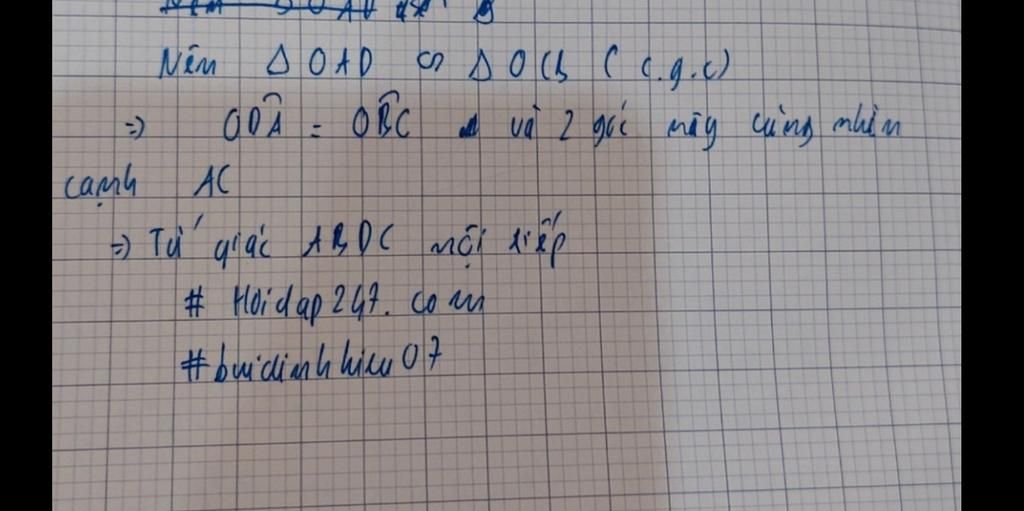 Nên Δ OAD ∽ Δ OCB ( c.g.c)
=> ODA^ = OBC^ và 2 góc này cùng nhìn
cạnh AC
=> Tứ giác ABDC nội tiếp
# Hoidap247.com
#buidinhhieu07